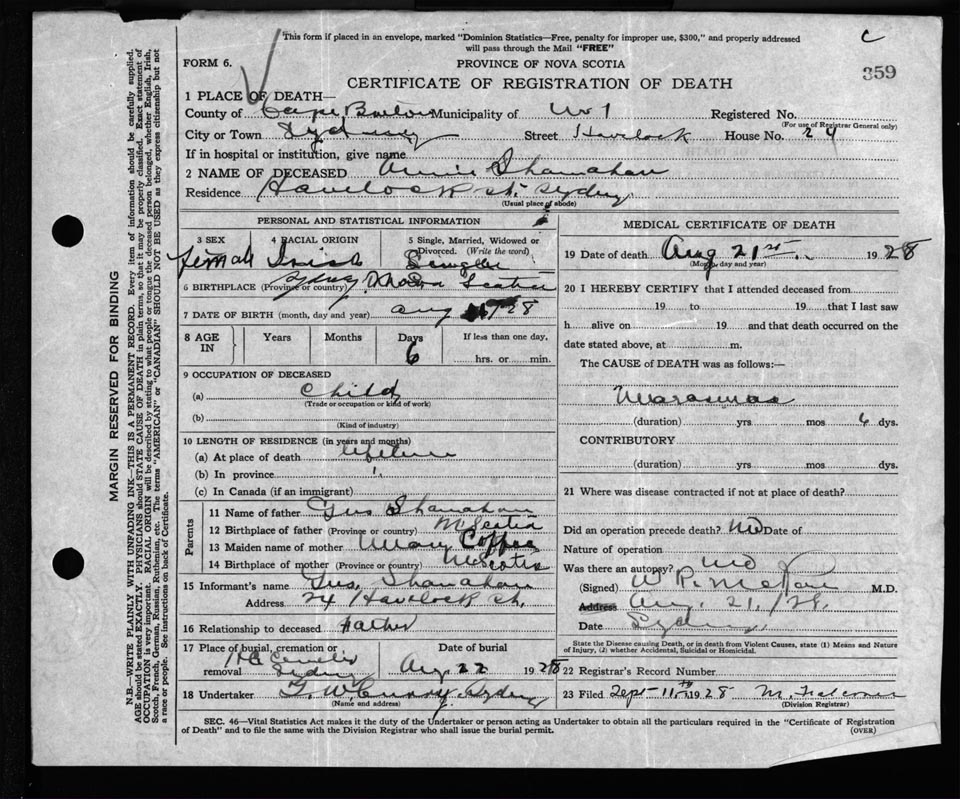 This form if placed in an envelope, marked "Dominion Statistics—Free, penalty for improper use, $300," and properly addressed
will pass through the Mail "FREE"
C
FORM 6.
PROVINCE OF NOVA SCOTIA
359
CERTIFICATE OF REGISTRATION OF DEATH
1 PLACE OF DEATH—
County of Cape Breton Municipality of Wd 1 Registered No.
(For use of Registrar General only)
City or Town Sydney Street Havelock House No. 24
If in hospital or institution, give name
2 NAME OF DECEASED Annie Shanahan
Residence Havelock St. Sydney
(Usual place of abode)
PERSONAL AND STATISTICAL INFORMATION
3 SEX 4 RACIAL ORIGIN 5 Single, Married, Widowed or Divorced. (Write the word)
female Irish Single
6 BIRTHPLACE (Province or country) Sydney Nova Scotia
7 DATE OF BIRTH (month, day and year) Aug /28
8 AGE IN Years Months Days If less than one day,
6 hrs. or min.
9 OCCUPATION OF DECEASED
(a) Child
(Trade or occupation or kind of work)
(b)
(Kind of industry)
10 LENGTH OF RESIDENCE (in years and months)
(a) At place of death lifetime
(b) In province "
(c) In Canada (if an immigrant)
Parents
11 Name of father Gus Shanahan
12 Birthplace of father (Province or country) N Scotia
13 Maiden name of mother Mary Coffee
14 Birthplace of mother (Province or country) N Scotia
15 Informant's name Gus. Shanahan
Address 24 Havelock St.
16 Relationship to deceased Father
17 Place of burial, cremation or removal Date of burial
Sydney Aug 22 1928
18 Undertaker Sydney
(Name and address)
MEDICAL CERTIFICATE OF DEATH
19 Date of death Aug 21st 1928
(Month, day and year)
20 I HEREBY CERTIFY that I attended deceased from
19 to 19 that I last saw
h alive on 19 and that death occurred on the
date stated above, at m.
The CAUSE of DEATH was as follows:—
Marasmus
(duration) yrs mos 6 dys.
CONTRIBUTORY
(duration) yrs. mos. dys.
21 Where was disease contracted if not at place of death?
Did an operation precede death? No Date of
Nature of operation
Was there an autopsy? No
(Signed) M.D.
Address Aug. 21./28.
Date Sydney
State the Disease causing Death, or in death from Violent Causes, state (1) Means and Nature
of Injury, (2) whether Accidental, Suicidal or Homicidal.
22 Registrar's Record Number
23 Filed Sept 11th 1928
(Division Registrar)
SEC. 46—Vital Statistics Act makes it the duty of the Undertaker or person acting as Undertaker to obtain all the particulars required in the "Certificate of Registration
of Death" and to file the same with the Division Registrar who shall issue the burial permit.
(OVER)
MARGIN RESERVED FOR BINDING
N.B.—WRITE PLAINLY WITH UNFADING INK—THIS IS A PERMANENT RECORD. Every item of information should be carefully supplied.
AGE should be stated EXACTLY. PHYSICIANS should STATE CAUSE OF DEATH in plain terms, so that it may be properly classified. Exact statement of
OCCUPATION is very important. RACIAL ORIGIN will be described by stating to what people or tongue the deceased person belonged, whether English, Irish,
Scotch, French, German, Russian, Ruthenian, etc. The terms "AMERICAN" or "CANADIAN" SHOULD NOT BE USED as they express citizenship but not
a race or people. See instructions on back of Certificate.